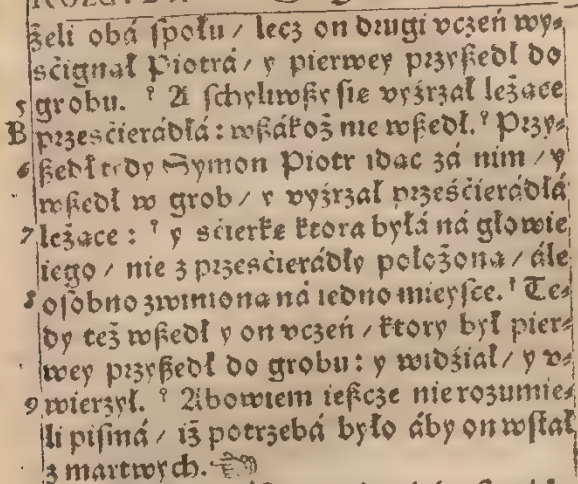 żeli obá ſpołu / lecz on drugi vczeń wy⸗
śćignął Piotrá / y pierwey przyßedł do
5 grobu. ⁹ A ſchyliwßy ſie vyźrzał leżące
B przeſćierádłá: wßákoż nie wßedł. ⁹ Przy⸗
6 ßedł tedy Symon Piotr idąc zá nim / y
wßedł w grob / y vyźrzał prześćierádłá
7 leżące : ⁹ y śćierkę ktora byłá ná głowie
iego / nie z przeſćierádły położoną / ále
8 oſobno zwinioną ná iedno mieyſce. ⁹ Te⸗
dy też wßedł y on vczeń / ktory był pier⸗
wey przyßedł do grobu: y widźiał / y v⸗
9 wierzył. ⁹ Abowiem ießcze nie rozumie⸗
li piſmá / iż potrzebá było áby on wſtał
z martwych. ☜